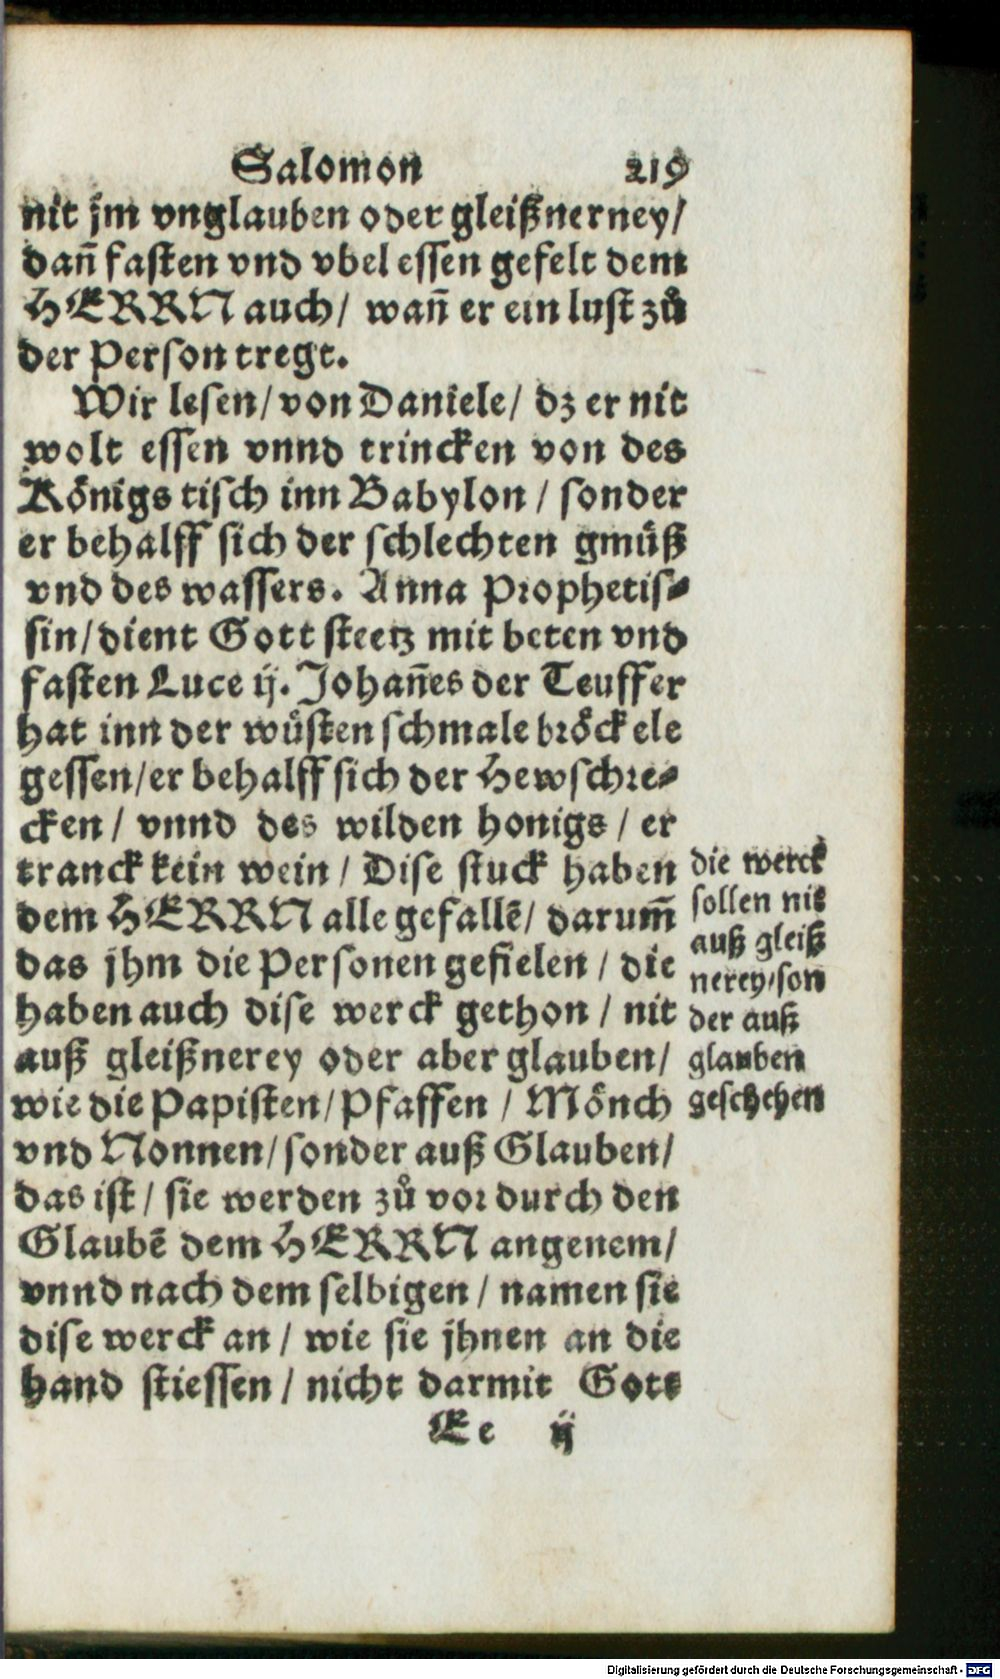 Salomon 219
nit jm vnglauben oder gleißnerney/
dañ fasten vnd vbel essen gefelt dem
HERRN auch/ wañ er ein lust zů
der Person tregt.
Wir lesen/ von Daniele/ dz er nit
wolt essen vnnd trincken von des
Königs tisch inn Babylon / sonder
er behalff sich der schlechten gmůß
vnd des wassers. Anna Prophetis-
sin/ dient Gott steetz mit beten vnd
fasten Luce ij. Johañes der Teuffer
hat inn der wůsten schmale bröckele
gessen/ er behalff sich der Hewschre-
cken / vnnd des wilden honigs / er
tranck kein wein / Dise stuck haben
dem HERRN alle gefallē/ darum̃
das jhm die Personen gefielen / die
haben auch dise werck gethon / nit
auß gleißnerey oder aber glauben/
wie die Papisten/ Pfaffen / Mönch
vnd Nonnen/ sonder auß Glauben/
das ist / sie werden zů vor durch den
Glaubē dem HERRN angenem/
vnnd nach dem selbigen / namen sie
dise werck an / wie sie jhnen an die
hand stiessen / nicht darmit Gott
Ee ij
die werck
sollen nit
auß gleiß
nerey/ son
der auß
glauben
geschehen
Digitalisierung gefördert durch die Deutsche Forschungsgemeinschaft - DFG